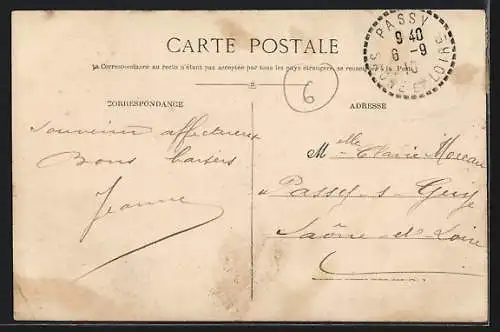 CARTE POSTALE
La Correspondance au recto n'étant pas acceptée par tous les pays étrangers, se renseigner à la Poste
6
CORRESPONDANCE
Souvenir affectueux
Bons baisers
Jeanne
ADRESSE
Melle Clavie Moreau
à Passy-s-Guye
Saône-et-Loire
PASSY
9 40
6 - 9
10
SAONE ET LOIRE